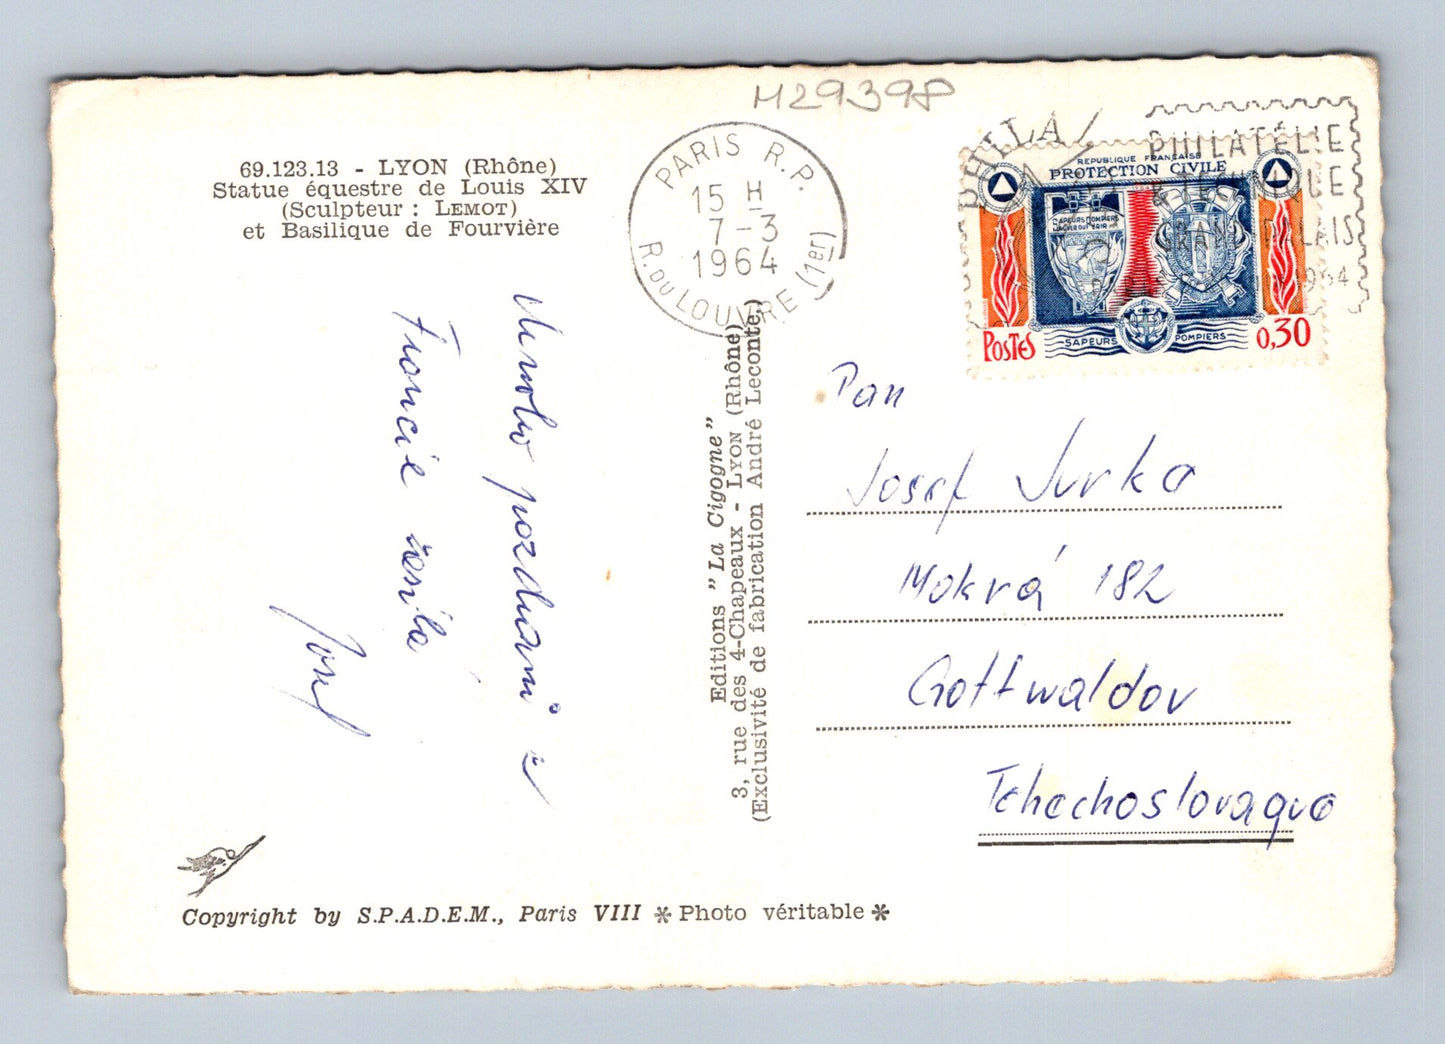 M29398
69.123.13 - LYON (Rhône)
Statue équestre de Louis XIV
(Sculpteur : LEMOT)
et Basilique de Fourvière
Mnoho pozdravů z
Francie zasílá
Josef
Editions "La Cigogne"
3, rue des 4-Chapeaux - LYON (Rhône)
(Exclusivité de fabrication André Leconte)
Copyright by S.P.A.D.E.M., Paris VIII * Photo véritable *
PARIS R.P.
15 H
7-3
1964
R. DU LOUVRE (1er)
PHILATÉLIE
GRAND PALAIS
1964
REPUBLIQUE FRANÇAISE
PROTECTION CIVILE
SAPEURS POMPIERS
POSTES
SAPEURS POMPIERS
0,30
Pan
Josef Jurka
Mokrá 182
Gottwaldov
Tchechoslovaque